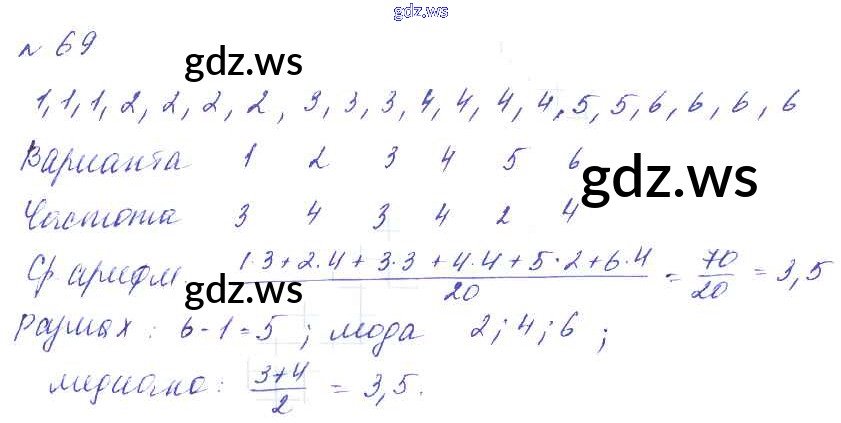 gdz.ws
№ 69
gdz.ws
1, 1, 1, 2, 2, 2, 2, 3, 3, 3, 4, 4, 4, 4, 5, 5, 6, 6, 6, 6
Варианта 1 2 3 4 5 6
gdz.ws
Частота 3 4 3 4 2 4
Ср. арифм \frac{1·3+2·4+3·3+4·4+5·2+6·4}{20} = \frac{70}{20} = 3,5
gdz.ws
размах: 6-1=5; мода 2; 4; 6;
медиана: \frac{3+4}{2} = 3,5.